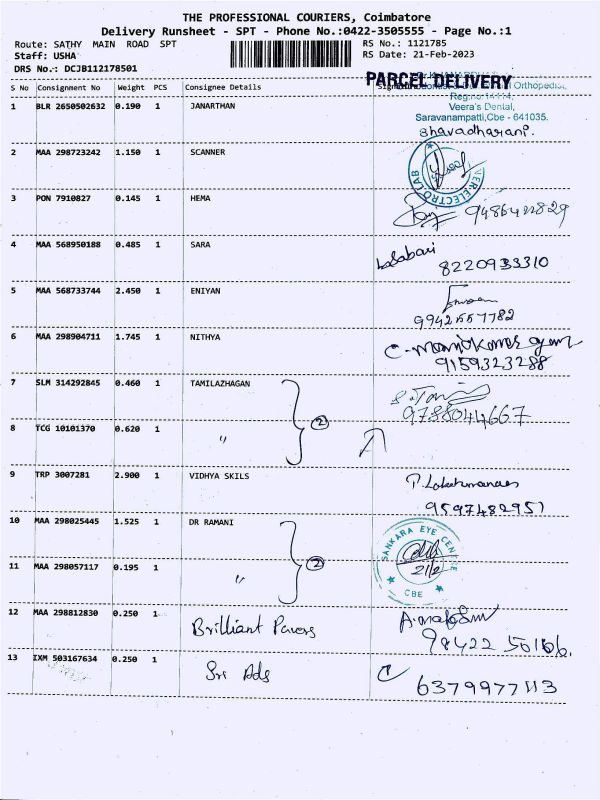 THE PROFESSIONAL COURIERS, Coimbatore
Delivery Runsheet - SPT - Phone No.:0422-3505555 - Page No.:1
Route: SATHY MAIN ROAD SPT
Staff: USHA
DRS No.: DCJB112178501
RS No.: 1121785
RS Date: 21-Feb-2023
PARCEL DELIVERY
S No Consignment No Weight PCS Consignee Details
Orthopedics,
Veera's Dental,
Saravanampatti,Cbe - 641035.
1 BLR 2650502632 0.190 1 JANARTHAN
Bhavadharani.
2 MAA 298723242 1.150 1 SCANNER
ELECTRO LAB
3 PON 7910827 0.145 1 HEMA
4 MAA 568950188 0.485 1 SARA
8220933310
5 MAA 568733744 2.450 1 ENIYAN
6 MAA 298904711 1.745 1 NITHYA
9159323288
7 SLM 314292845 0.460 1 TAMILAZHAGAN
2
9788044667
8 TCG 10101370 0.620 1 "
9 TRP 3007281 2.900 1 VIDHYA SKILS
9597482951
10 MAA 298025445 1.525 1 DR RAMANI
SANKARA EYE CENTRE
21/2
CBE
11 MAA 298057117 0.195 1 "
2
12 MAA 298812830 0.250 1 Brilliant Pavers
13 IXM 503167634 0.250 1 Sri Ads
6379977113